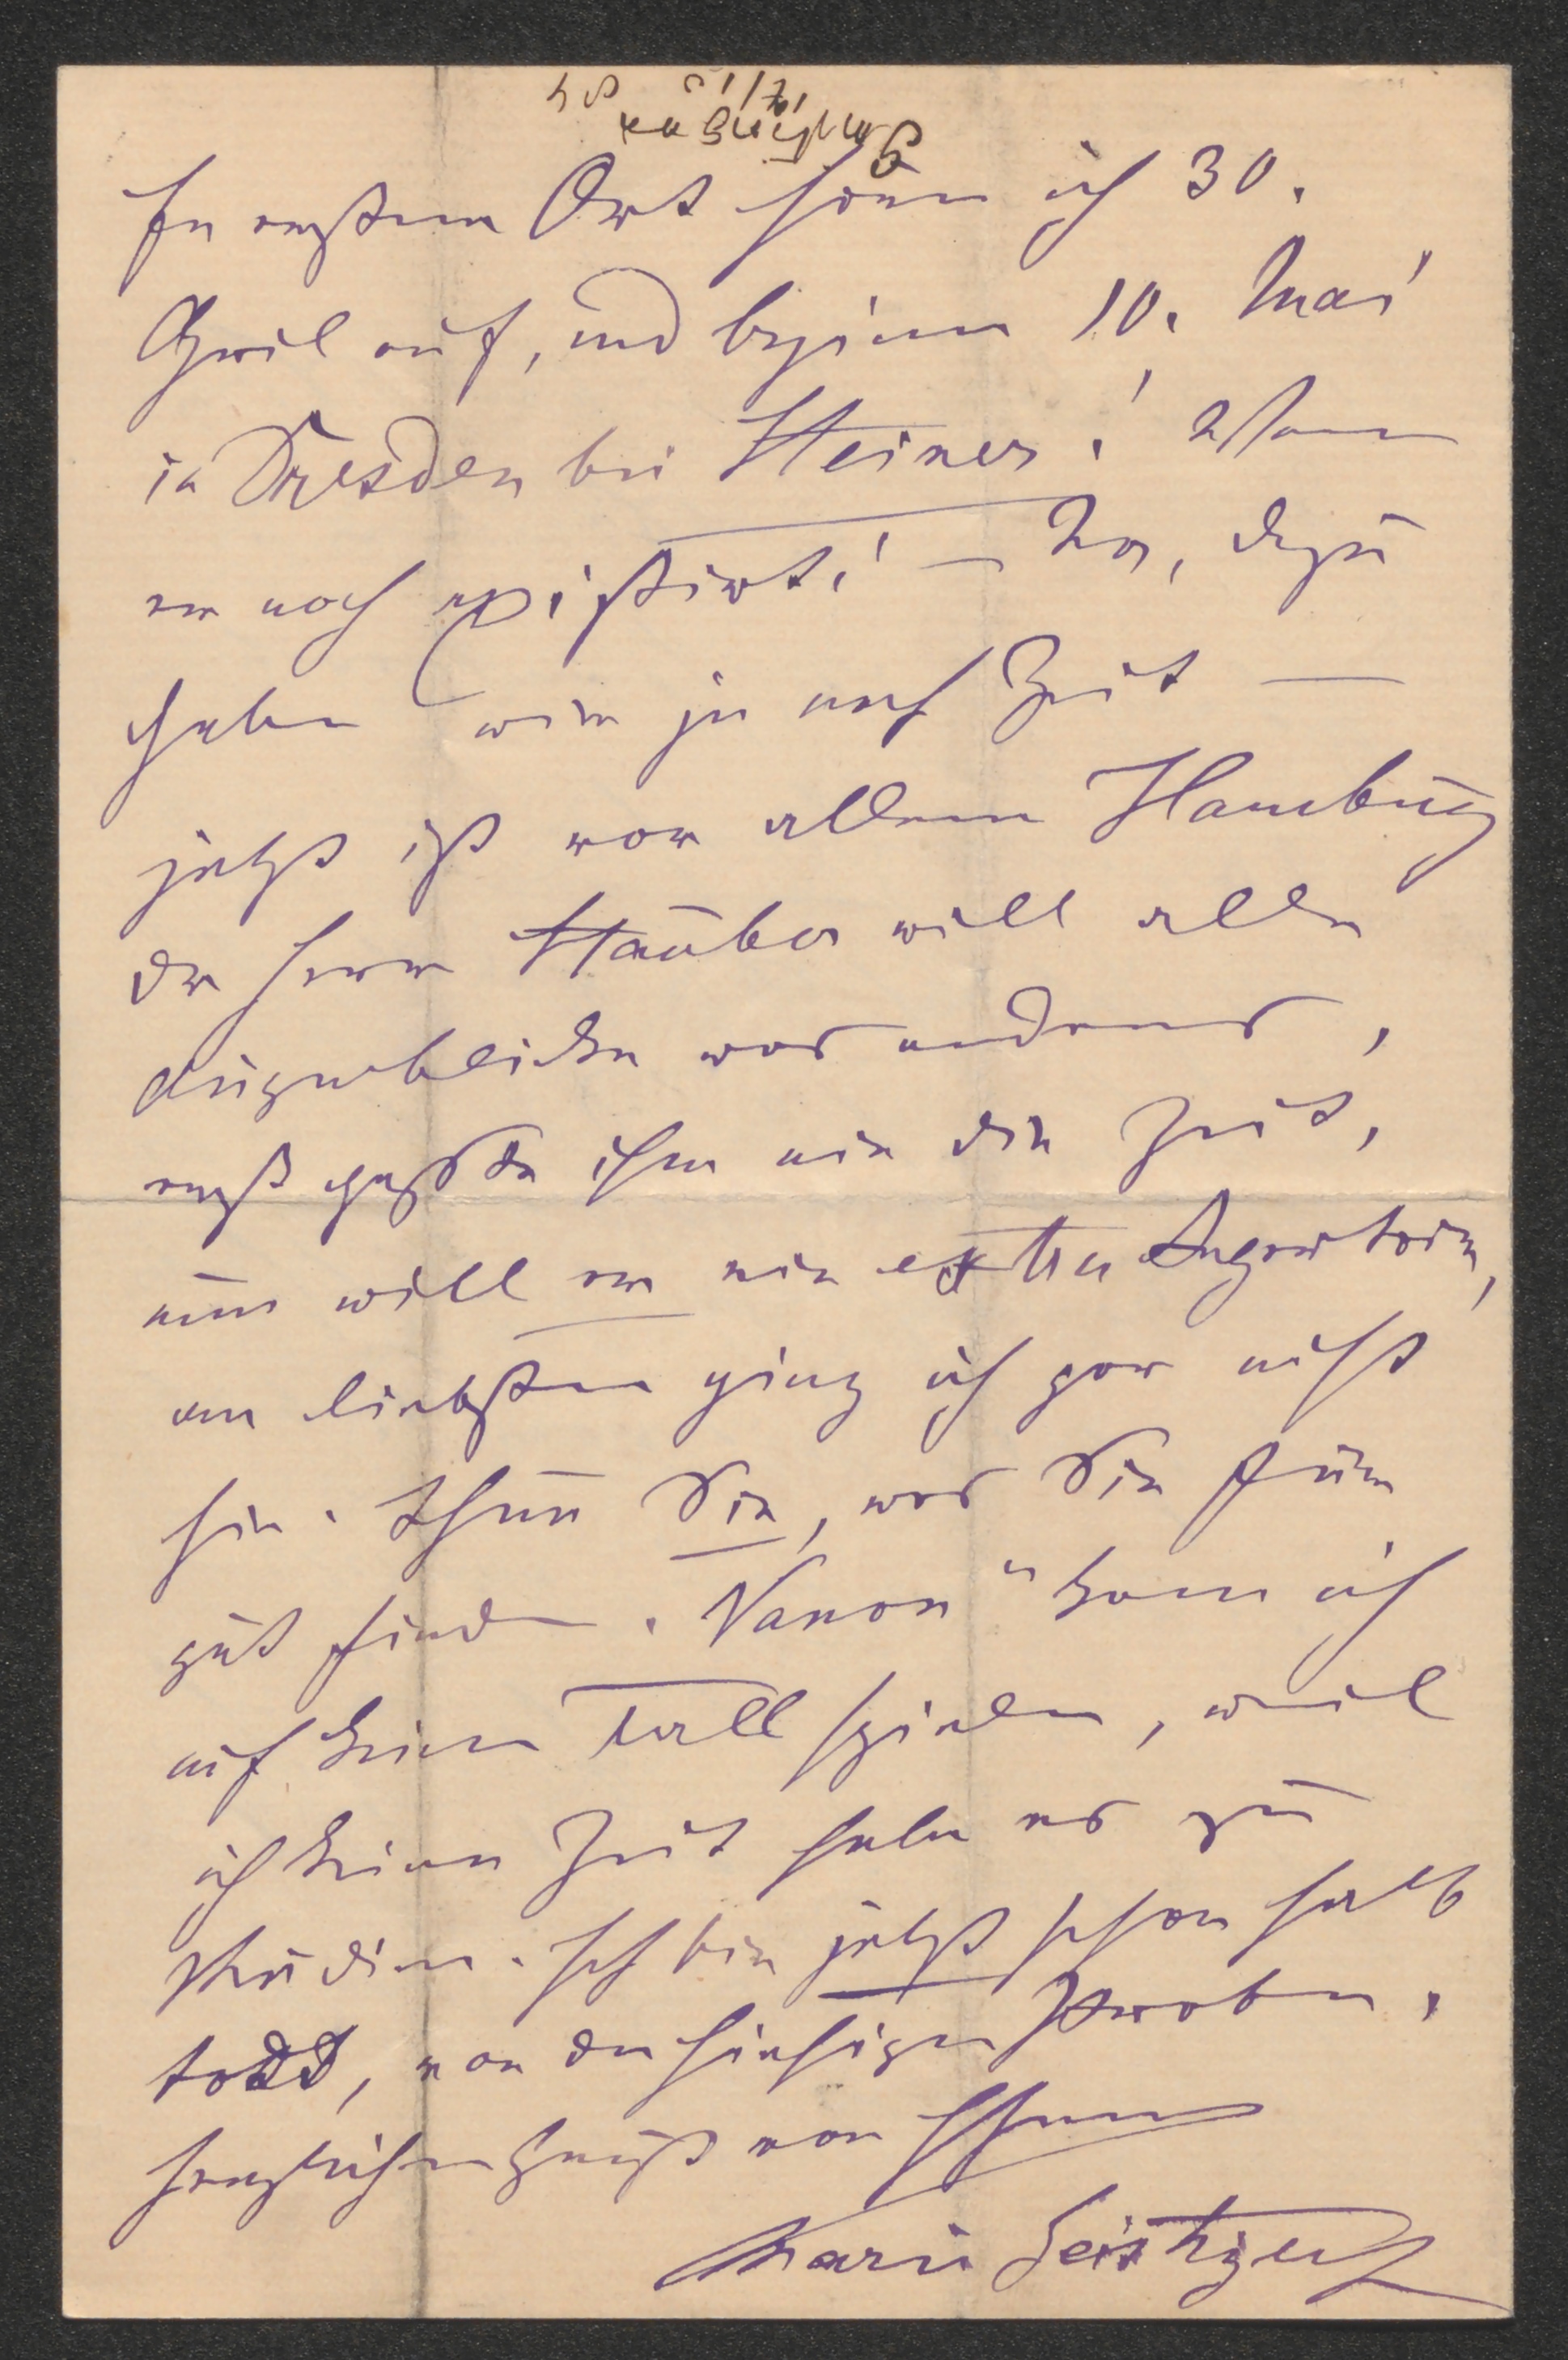 Geistinger
12/12 84
In erstem Ort höre ich 30.
April auf, und beginne 10. Mai
in Dresden bei Steiner! Wenn
er noch existirt! — Na, dazu
haben wir ja noch Zeit —
jetzt ist vor allem Hamburg
der Herr Stauber will alle
Augenblicke was anderes,
erst passte ihm nie die Zeit,
nun will er ein extra Repertoir,
am liebsten ging ich gar nicht
hin. Thun Sie, was Sie für
gut finden. Nanon" kann ich
auf keinen Fall spielen, weil
ich keine Zeit habe es zu
studiren. Ich bin jetzt schon halb
todt, von den hiesigen Proben.
Herzlichen Gruß von Ihrer
Marie Geistinger